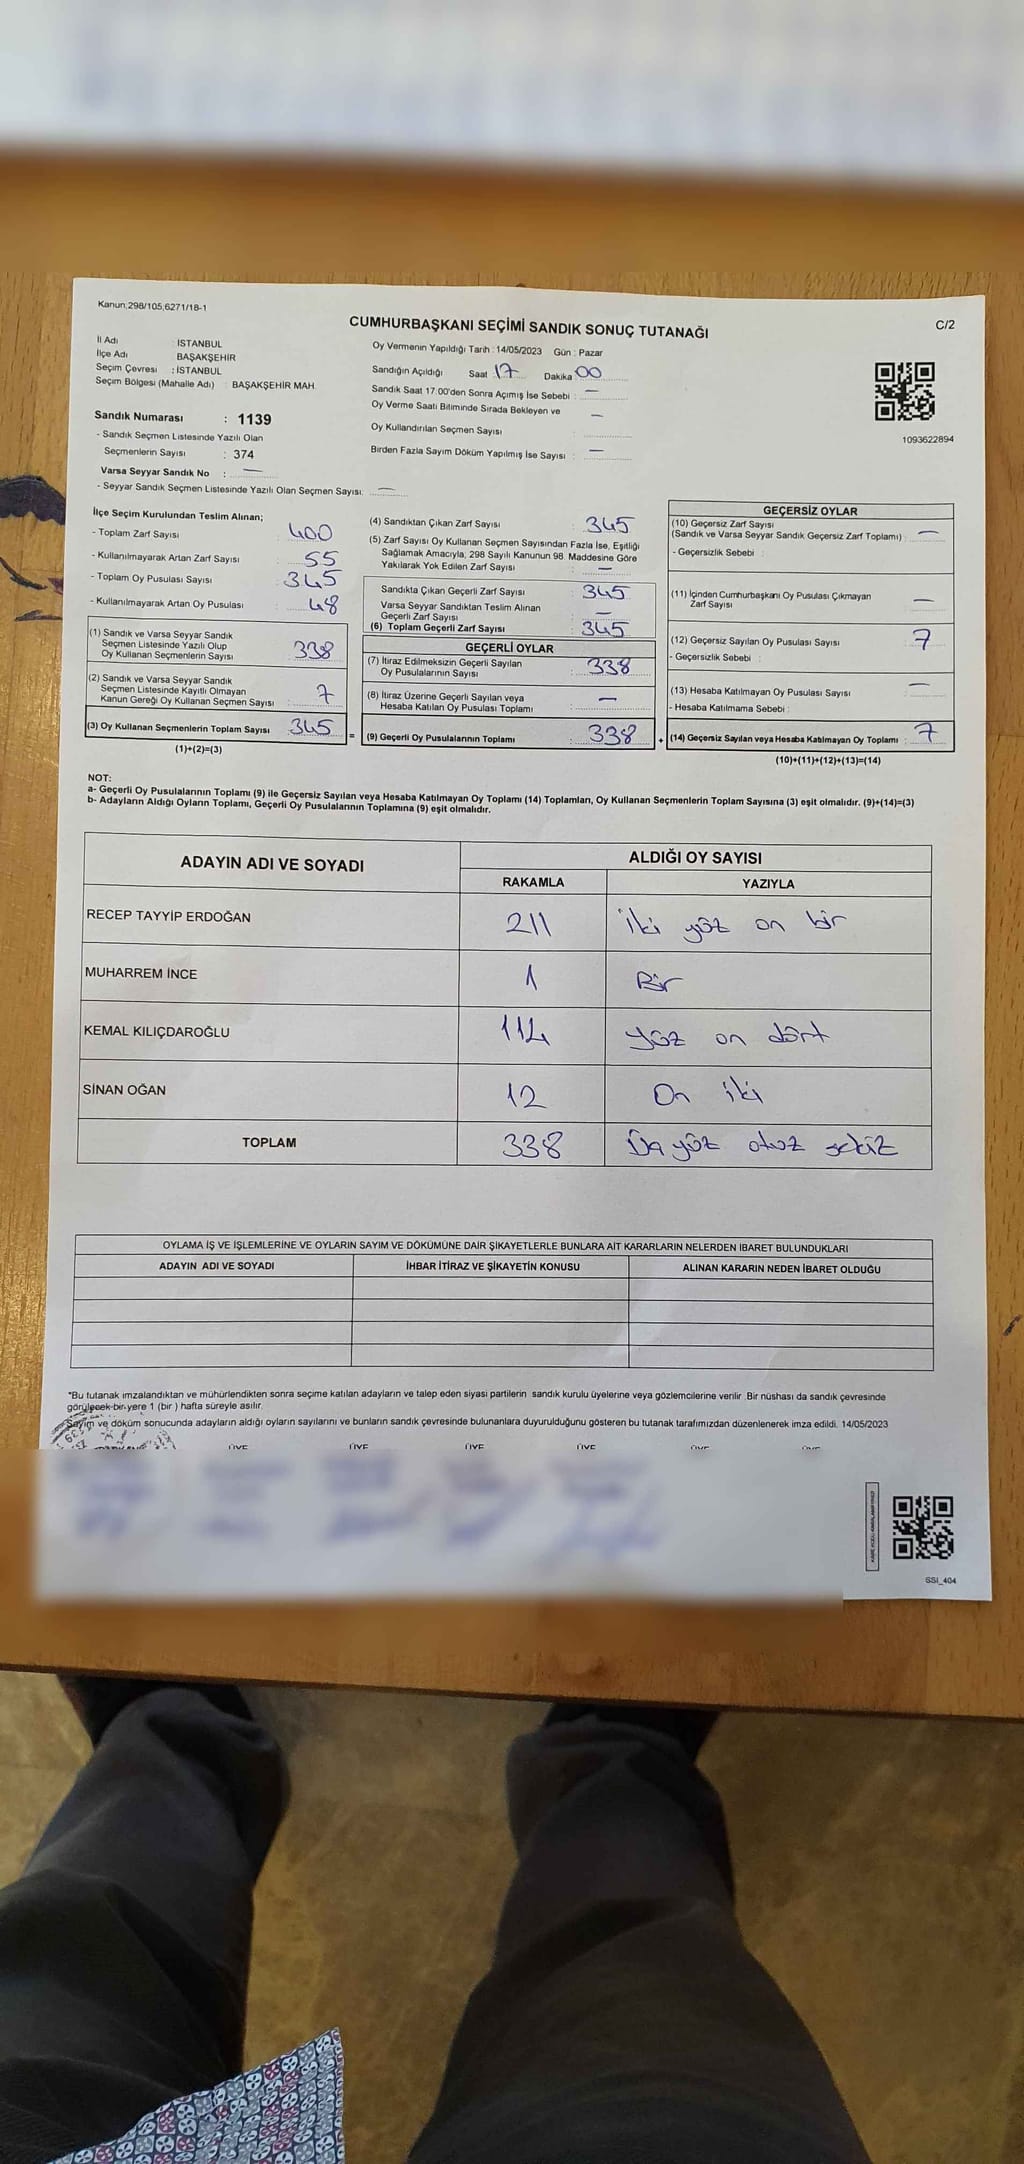 Kanun;298/105,6271/18-1
C/2
CUMHURBAŞKANI SEÇİMİ SANDIK SONUÇ TUTANAĞI
İl Adı : İSTANBUL
İlçe Adı : BAŞAKŞEHİR
Seçim Çevresi : İSTANBUL
Seçim Bölgesi (Mahalle Adı) : BAŞAKŞEHİR MAH.
Sandık Numarası : 1139
- Sandık Seçmen Listesinde Yazılı Olan
Seçmenlerin Sayısı : 374
Varsa Seyyar Sandık No : —
- Seyyar Sandık Seçmen Listesinde Yazılı Olan Seçmen Sayısı: —
Oy Vermenin Yapıldığı Tarih : 14/05/2023 Gün : Pazar
Sandığın Açıldığı Saat 17 Dakika 00
Sandık Saat 17:00'den Sonra Açımış İse Sebebi : —
Oy Verme Saati Bitiminde Sırada Bekleyen ve —
Oy Kullandırılan Seçmen Sayısı :
Birden Fazla Sayım Döküm Yapılmış İse Sayısı : —
1093622894
İlçe Seçim Kurulundan Teslim Alınan;
- Toplam Zarf Sayısı : 400
- Kullanılmayarak Artan Zarf Sayısı : 55
- Toplam Oy Pusulası Sayısı : 345
- Kullanılmayarak Artan Oy Pusulası : 48
(1) Sandık ve Varsa Seyyar Sandık
Seçmen Listesinde Yazılı Olup
Oy Kullanan Seçmenlerin Sayısı : 338
(2) Sandık ve Varsa Seyyar Sandık
Seçmen Listesinde Kayıtlı Olmayan
Kanun Gereği Oy Kullanan Seçmen Sayısı : 7
(3) Oy Kullanan Seçmenlerin Toplam Sayısı : 345
(1)+(2)=(3)
(4) Sandıktan Çıkan Zarf Sayısı : 345
(5) Zarf Sayısı Oy Kullanan Seçmen Sayısından Fazla İse, Eşitliği
Sağlamak Amacıyla, 298 Sayılı Kanunun 98. Maddesine Göre
Yakılarak Yok Edilen Zarf Sayısı : —
Sandıkta Çıkan Geçerli Zarf Sayısı : 345
Varsa Seyyar Sandıktan Teslim Alınan
Geçerli Zarf Sayısı : —
(6) Toplam Geçerli Zarf Sayısı : 345
GEÇERLİ OYLAR
(7) İtiraz Edilmeksizin Geçerli Sayılan
Oy Pusulalarının Sayısı : 338
(8) İtiraz Üzerine Geçerli Sayılan veya
Hesaba Katılan Oy Pusulası Toplamı : —
= (9) Geçerli Oy Pusulalarının Toplamı : 338
GEÇERSİZ OYLAR
(10) Geçersiz Zarf Sayısı
(Sandık ve Varsa Seyyar Sandık Geçersiz Zarf Toplamı) : —
- Geçersizlik Sebebi :
(11) İçinden Cumhurbaşkanı Oy Pusulası Çıkmayan
Zarf Sayısı : —
(12) Geçersiz Sayılan Oy Pusulası Sayısı : 7
- Geçersizlik Sebebi :
(13) Hesaba Katılmayan Oy Pusulası Sayısı : —
- Hesaba Katılmama Sebebi :
+ (14) Geçersiz Sayılan veya Hesaba Katılmayan Oy Toplamı : 7
(10)+(11)+(12)+(13)=(14)
NOT:
a- Geçerli Oy Pusulalarının Toplamı (9) ile Geçersiz Sayılan veya Hesaba Katılmayan Oy Toplamı (14) Toplamları, Oy Kullanan Seçmenlerin Toplam Sayısına (3) eşit olmalıdır. (9)+(14)=(3)
b- Adayların Aldığı Oyların Toplamı, Geçerli Oy Pusulalarının Toplamına (9) eşit olmalıdır.
ADAYIN ADI VE SOYADI
ALDIĞI OY SAYISI
RAKAMLA YAZIYLA
RECEP TAYYİP ERDOĞAN 211 iki yüz on bir
MUHARREM İNCE 1 Bir
KEMAL KILIÇDAROĞLU 114 yüz on dört
SİNAN OĞAN 12 On iki
TOPLAM 338 Üç yüz otuz sekiz
OYLAMA İŞ VE İŞLEMLERİNE VE OYLARIN SAYIM VE DÖKÜMÜNE DAİR ŞİKAYETLERLE BUNLARA AİT KARARLARIN NELERDEN İBARET BULUNDUKLARI
ADAYIN ADI VE SOYADI İHBAR İTİRAZ VE ŞİKAYETİN KONUSU ALINAN KARARIN NEDEN İBARET OLDUĞU
*Bu tutanak imzalandıktan ve mühürlendikten sonra seçime katılan adayların ve talep eden siyasi partilerin sandık kurulu üyelerine veya gözlemcilerine verilir. Bir nüshası da sandık çevresinde
görülecek bir yere 1 (bir) hafta süreyle asılır.
Sayım ve döküm sonucunda adayların aldığı oyların sayılarını ve bunların sandık çevresinde bulunanlara duyurulduğunu gösteren bu tutanak tarafımızdan düzenlenerek imza edildi. 14/05/2023
ÜYE ÜYE ÜYE ÜYE ÜYE ÜYE
SSI_404